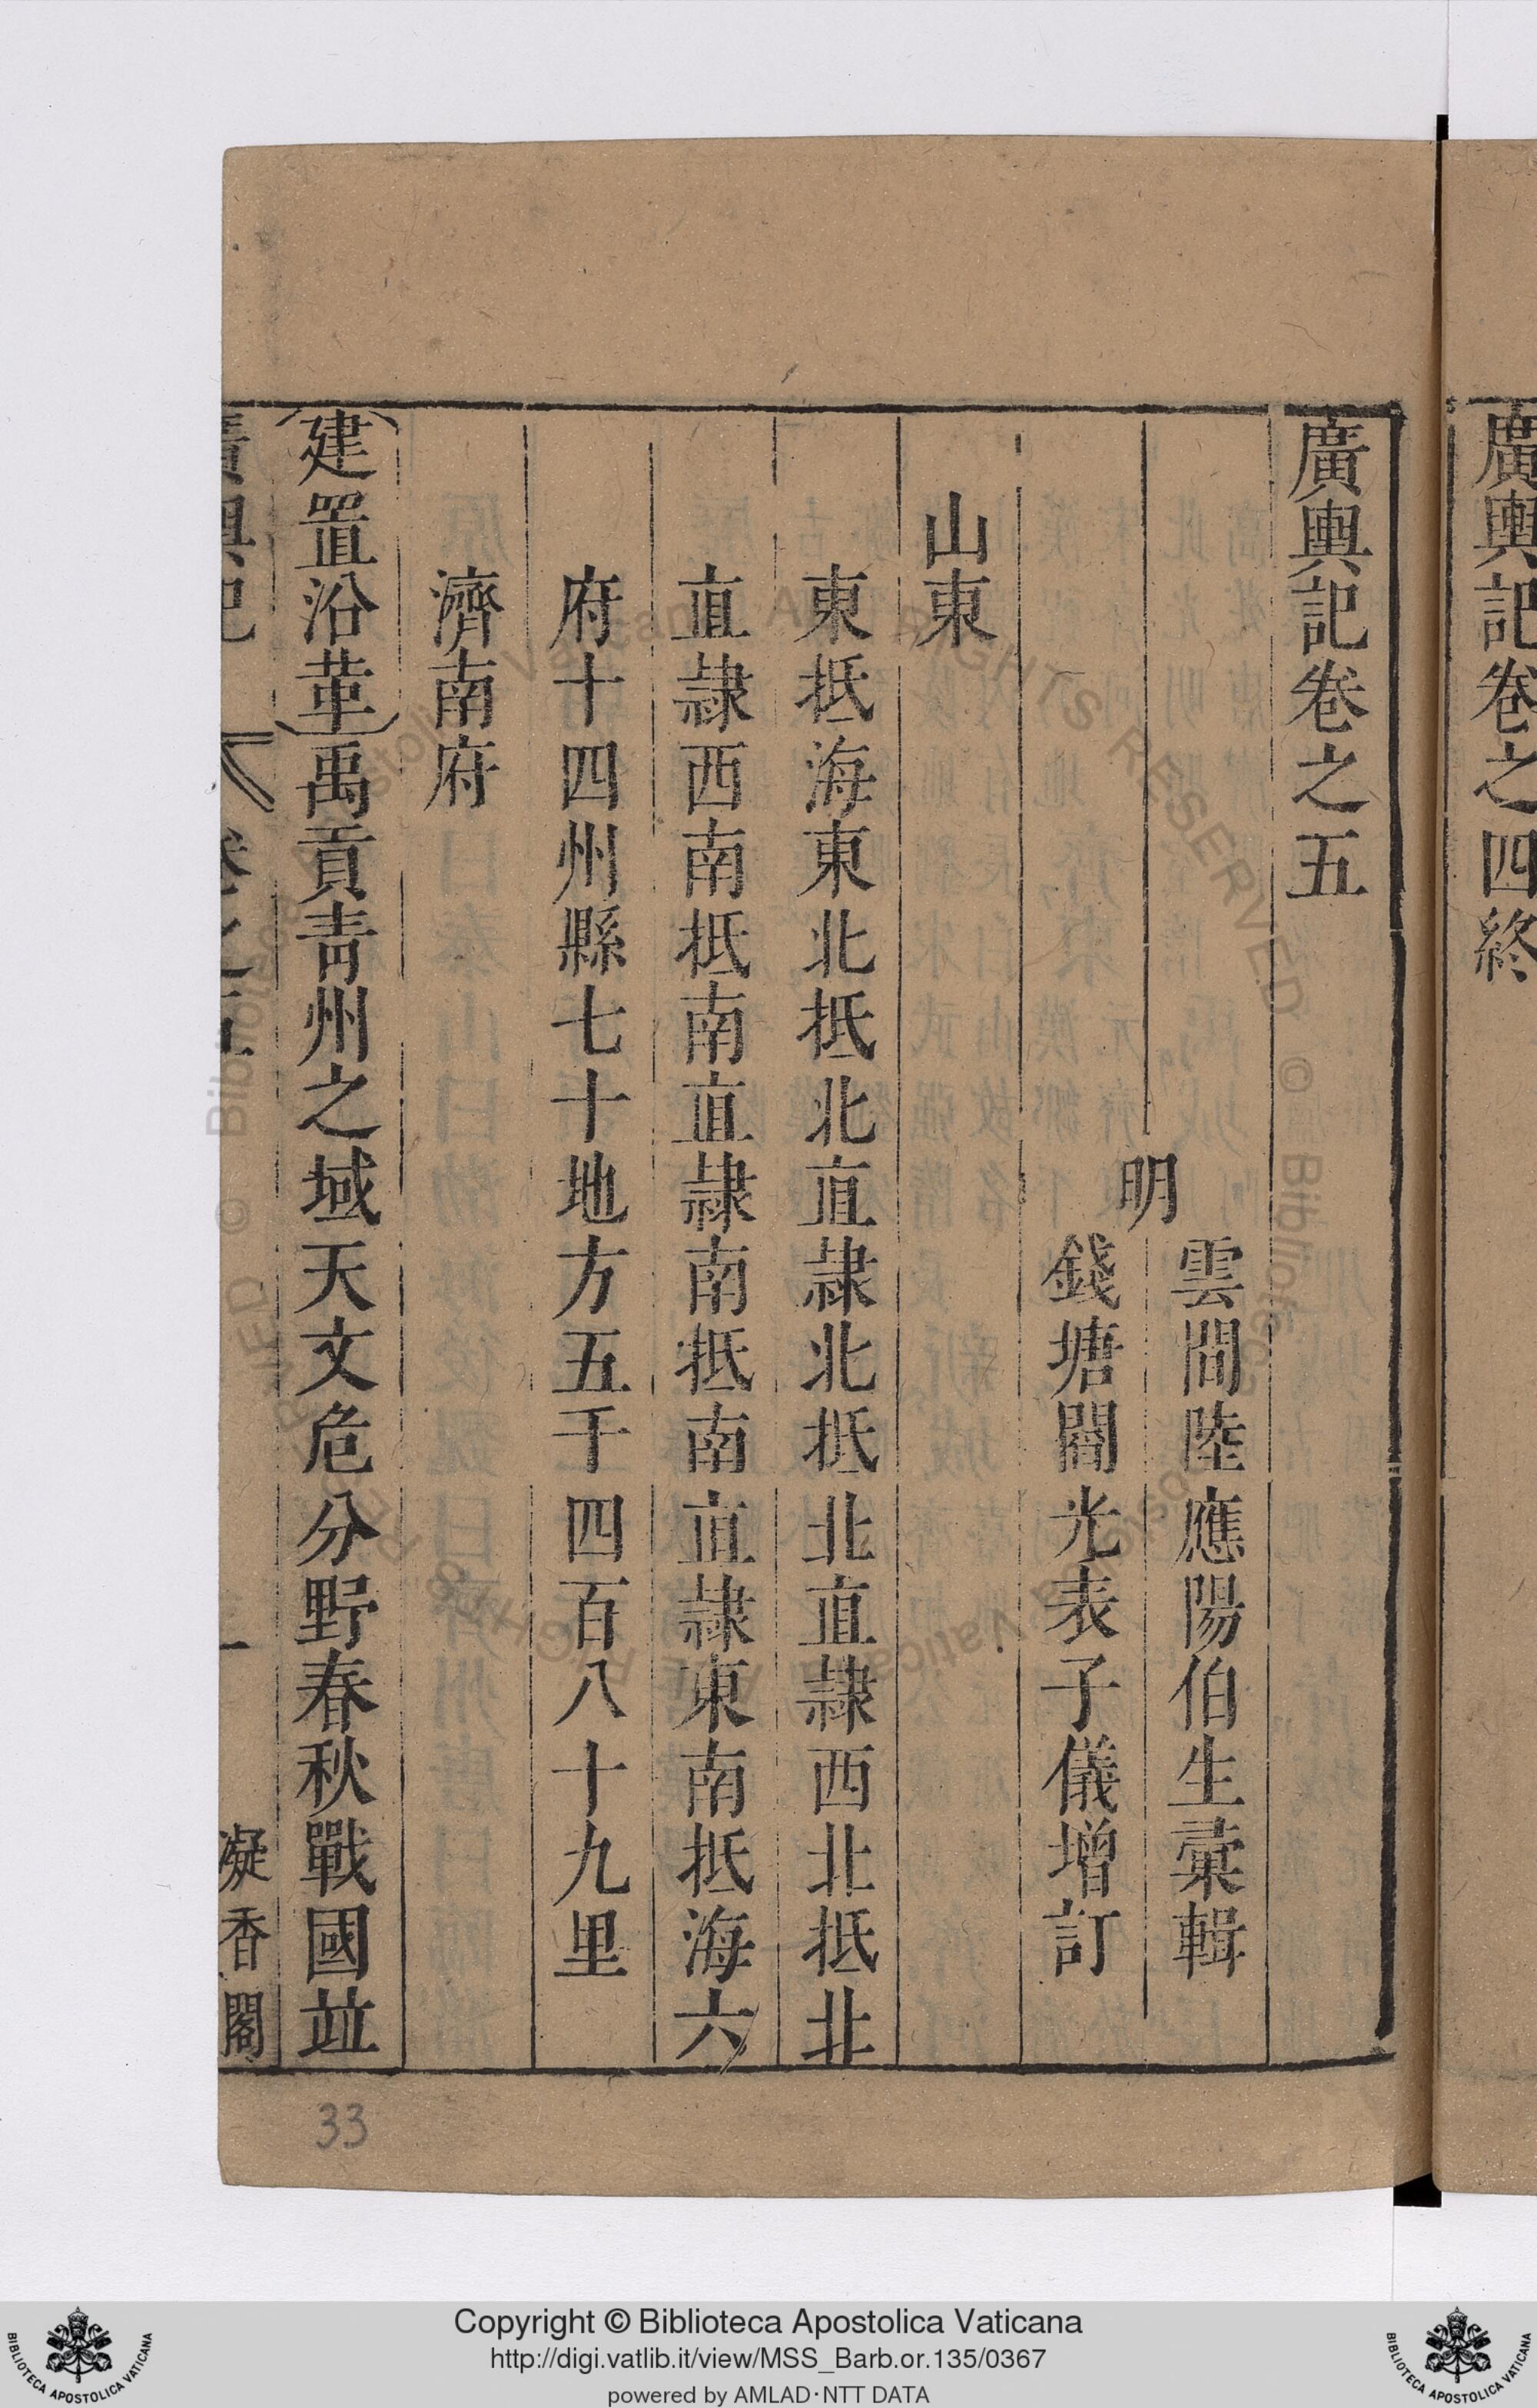 廣輿記卷之四終
廣輿記卷之五
明
雲間陸應陽伯生彙輯
錢塘閻光表子儀增訂
山東
東抵海東北抵北直隷北抵北直隷西北抵北
直隷西南抵南直隷南抵南直隷東南抵海六
府十四州縣七十地方五千四百八十九里
濟南府
建置沿革禹貢青州之域天文危分野春秋戰國並
廣輿記 卷之五 一 凝香閣
33
Copyright © Biblioteca Apostolica Vaticana
http://digi.vatlib.it/view/MSS_Barb.or.135/0367
powered by AMLAD·NTT DATA
BIBLIOTECA APOSTOLICA VATICANA
BIBLIOTECA APOSTOLICA VATICANA